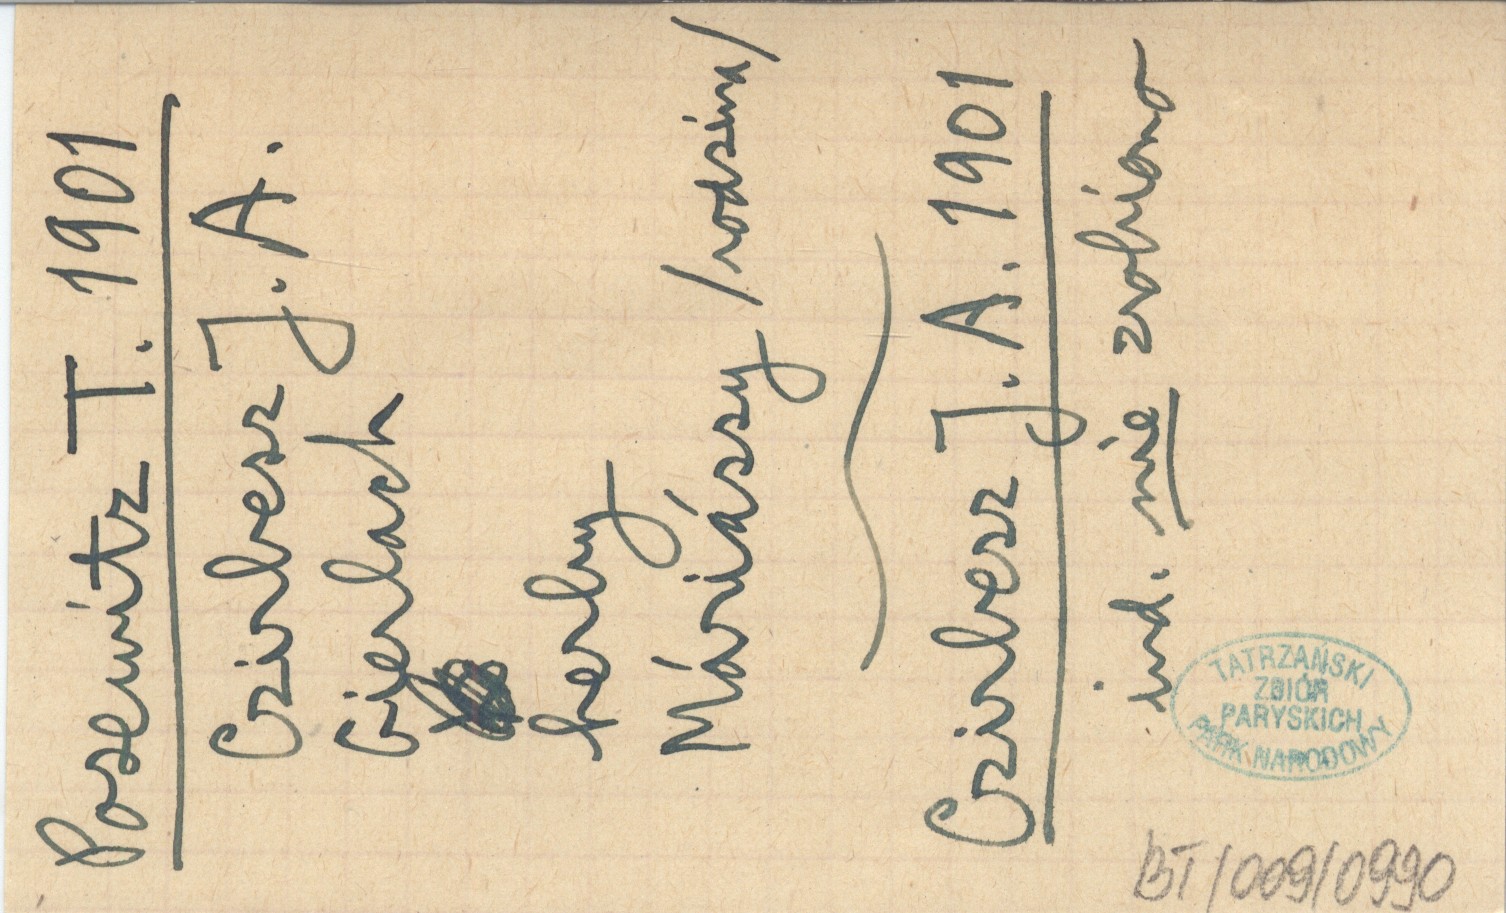 Posewitz T. 1901
Czirbesz J. A.
Gierlach
herby
Máriássy /rodzina/
Czirbesz J. A. 1901
ind. nie zrobiono
TATRZAŃSKI
ZBIÓR
PARYSKICH
PARK NARODOWY
BT/009/0990